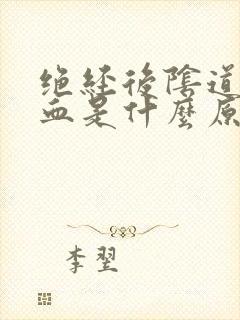 绝经後陰道
血是什麼原
李翌